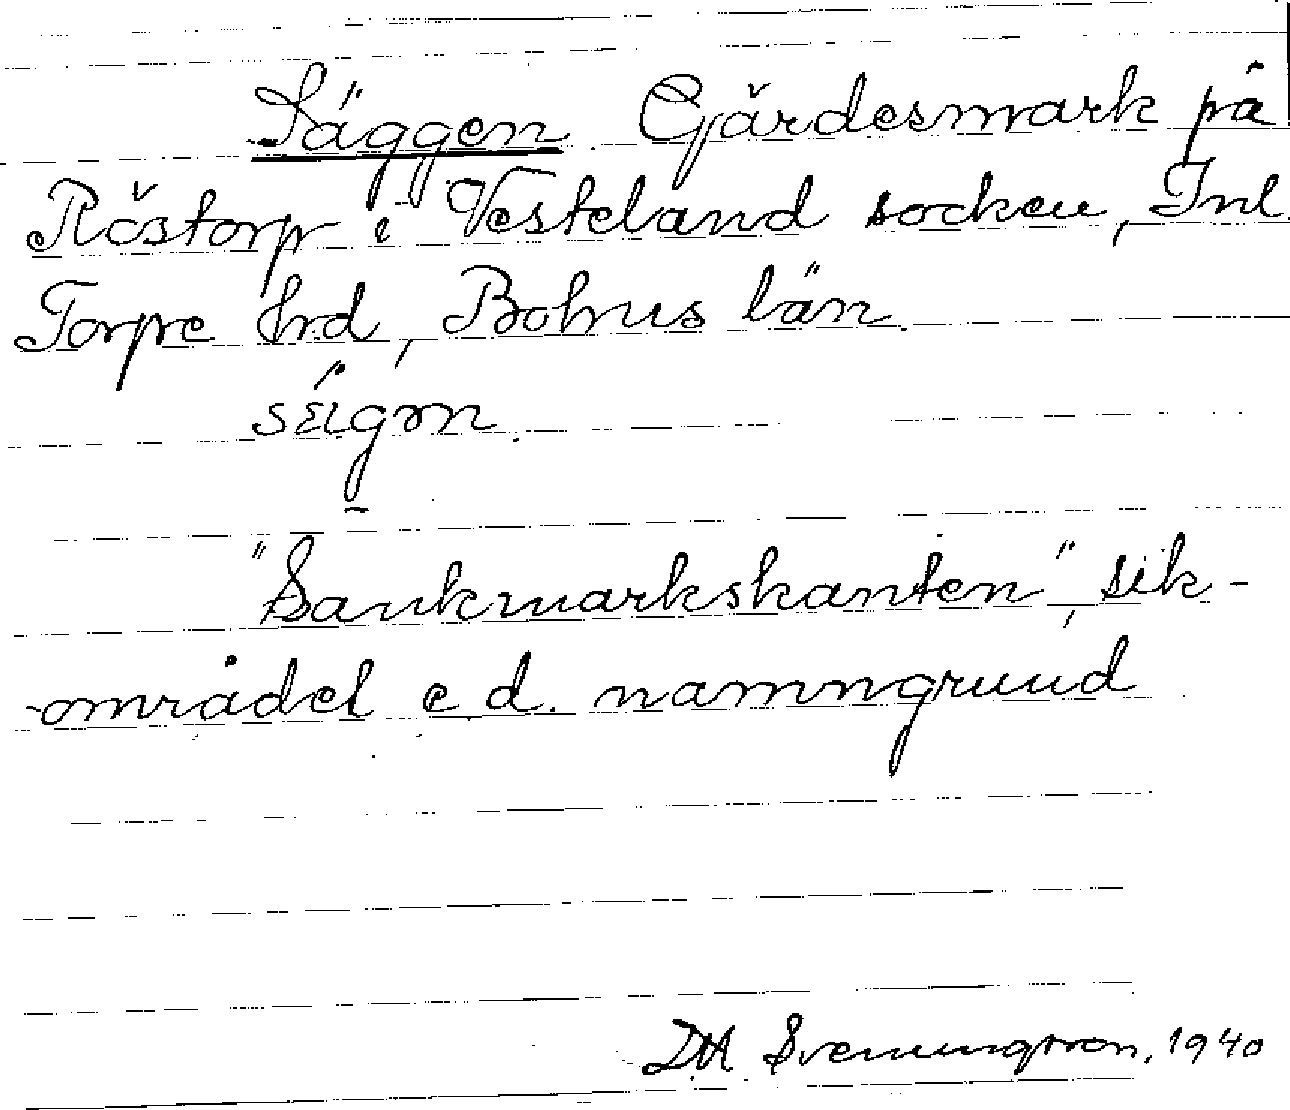 Säggen Gjärdesmark på
Röstorp i Vesteland socken, Inl.
Torpe hrd, Bohus län.
"Sankmarkskanten", sik-
området e.d. namngrund
DH Svenungsson, 1940